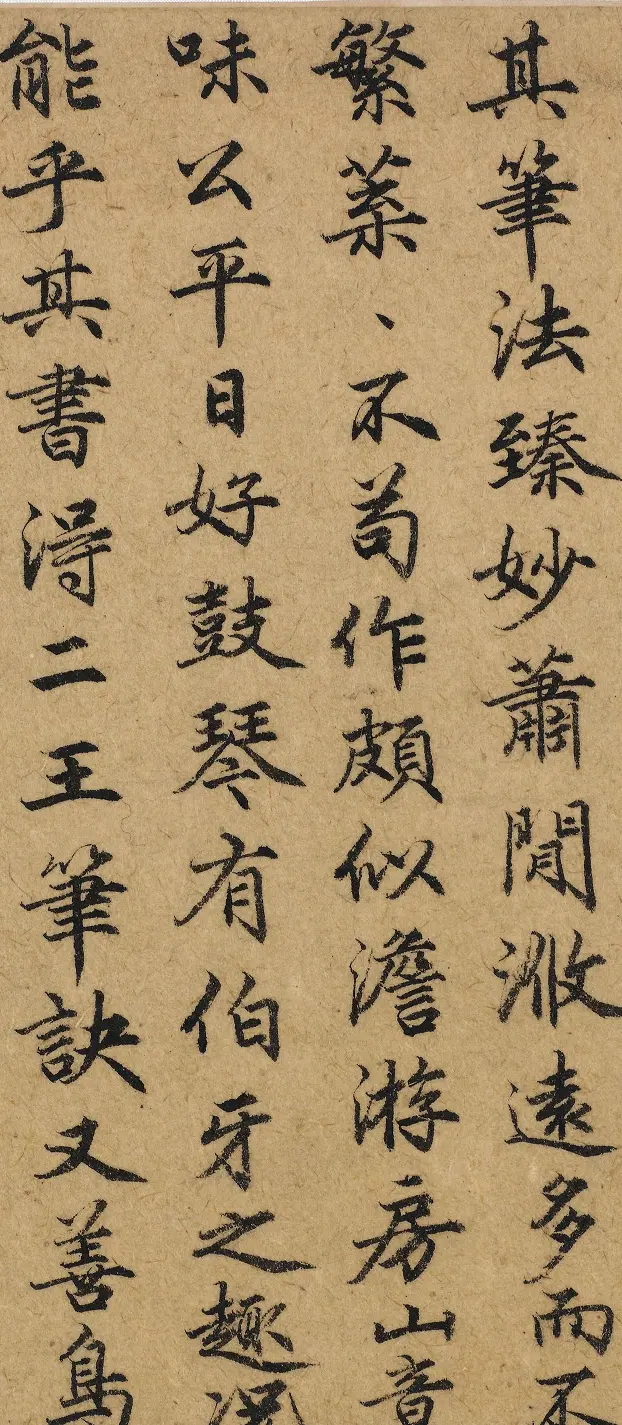 其筆法臻妙蕭閒浟遠多而不
繁葉、不苟作頗似澹游房山音
味公平日好鼓琴有伯牙之趣況
能乎其書得二王筆訣又善鳥